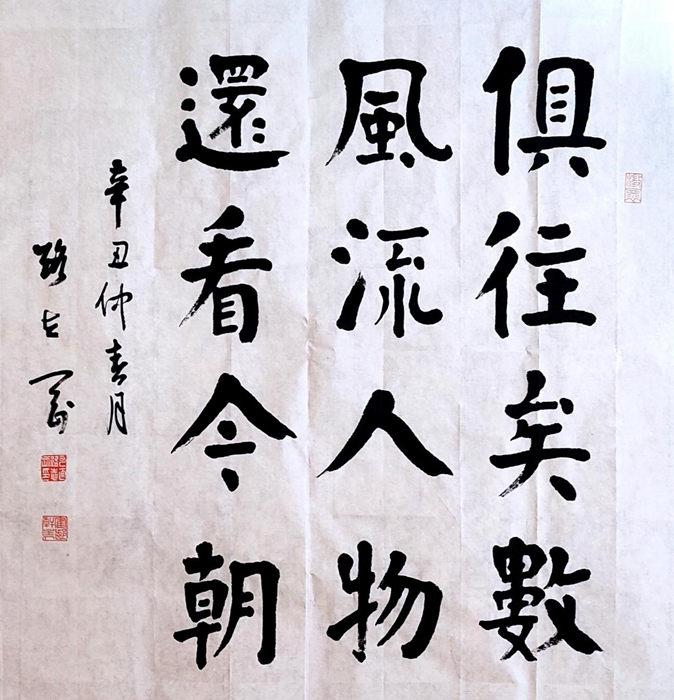 俱往矣數
風流人物
還看今朝
辛丑仲春月